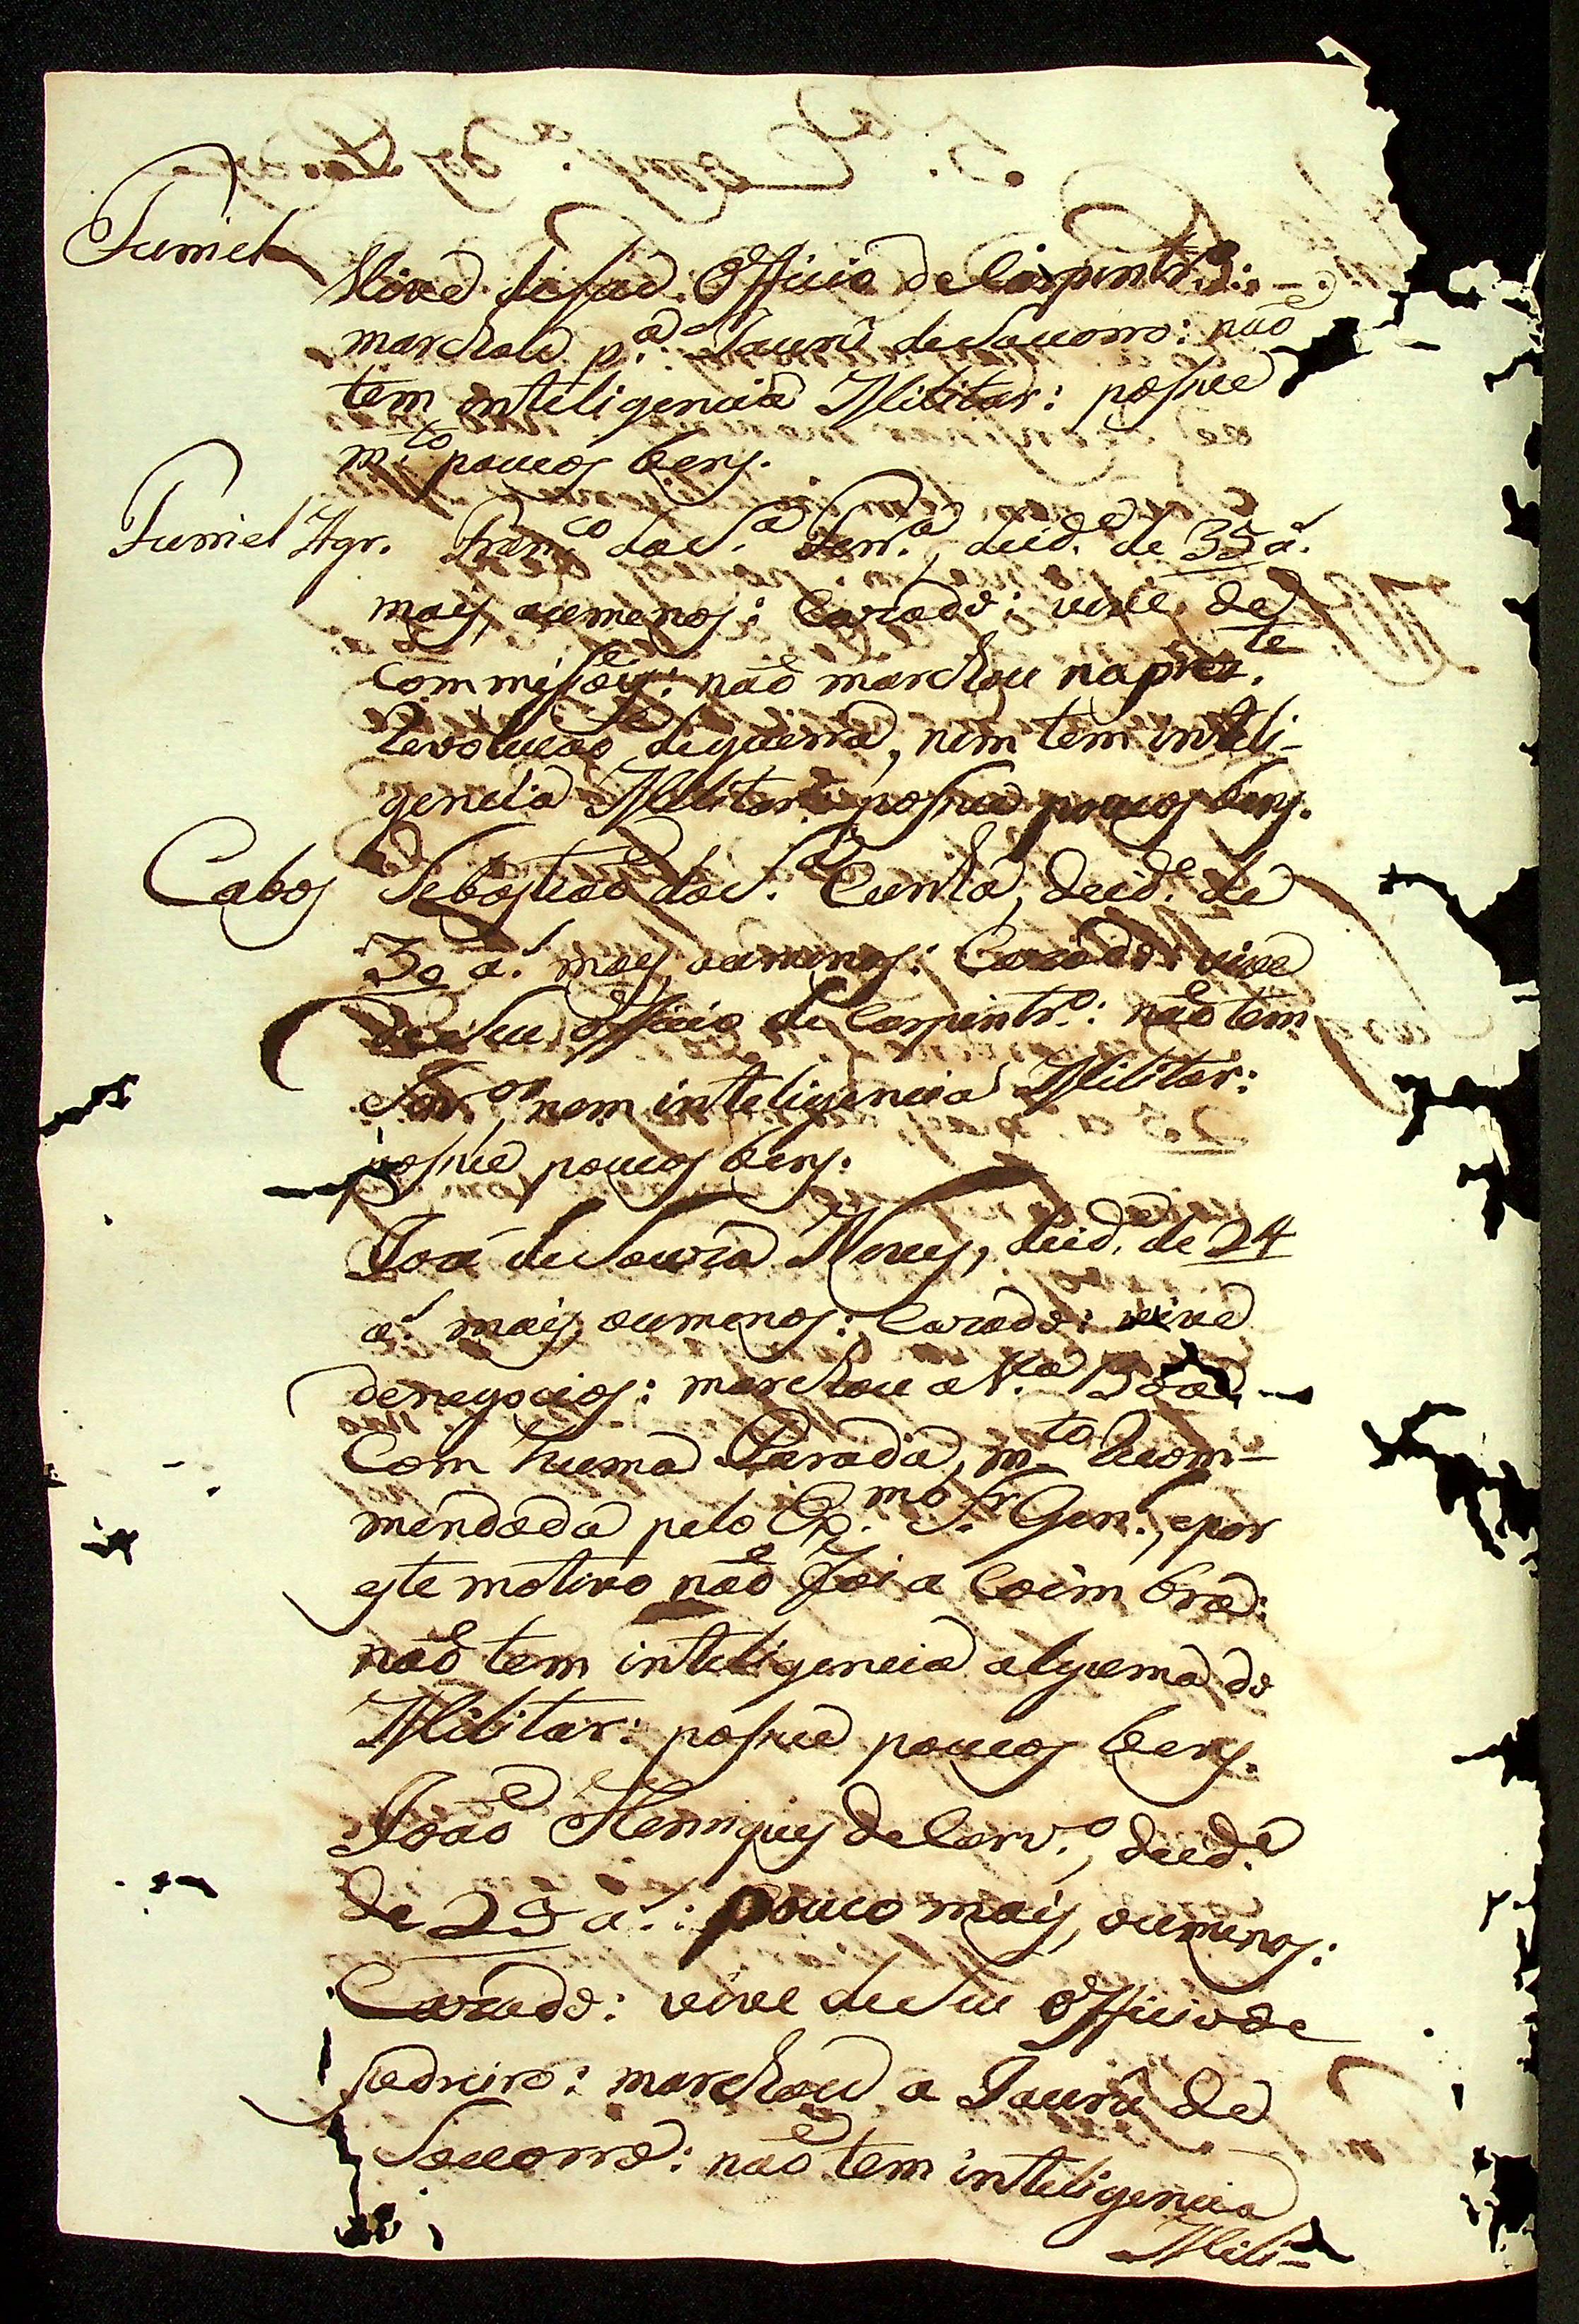 Furriel
Vive de seu Officio de Carpintr.o: -
marchou p.a Taurú de Socorro: naõ
tem inteligencia Militar: possue
m.to poucos bens.
Furriel Agr. Fran.co da S.a Ferr.a, de id.e de 35 a.s
mais, ou menos: Cazado: vive de
Commissões: naõ marchou na prez.te
Revolucaõ de guerra, nem tem inteli-
gencia Militar: possue poucos bens.
Cabos Sebastiaõ da S.a Cunha, de id.e de
30 a.s mais, ou menos: Cazado: vive
de seu Officio de Carpintr.o: naõ tem
nem inteligencia Militar:
possue poucos bens.
Joa de Souza Neves, de id.e de 24
a.s mais, ou menos: Cazado: vive
de negocios: marchou a V.a Boa -
Com huma Parada, m.to Recom-
mendada pelo Ex.mo S.r Gen.l, e por
este motivo naõ foi a Coimbra:
naõ tem inteligencia alguma do
Militar: possue poucos bens.
Joaõ Henriques de Carv.o, de id.e
de 29 a.s: pouco mais, ou menos:
Cazado: vive de seu Officio de
Pedreiro: marchou a Taurú de
Socorro: naõ tem inteligencia
Mili-